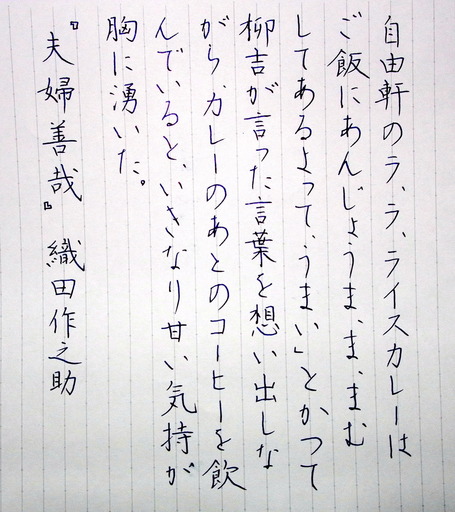 自由軒のラ、ラ、ライスカレーは
ご飯にあんじょうま、ま、まむ
してあるよって、うまい」とかつて
柳吉が言った言葉を想い出しな
がら、カレーのあとのコーヒーを飲
んでいると、いきなり甘い気持が
胸に湧いた。
『夫婦善哉』 織田作之助